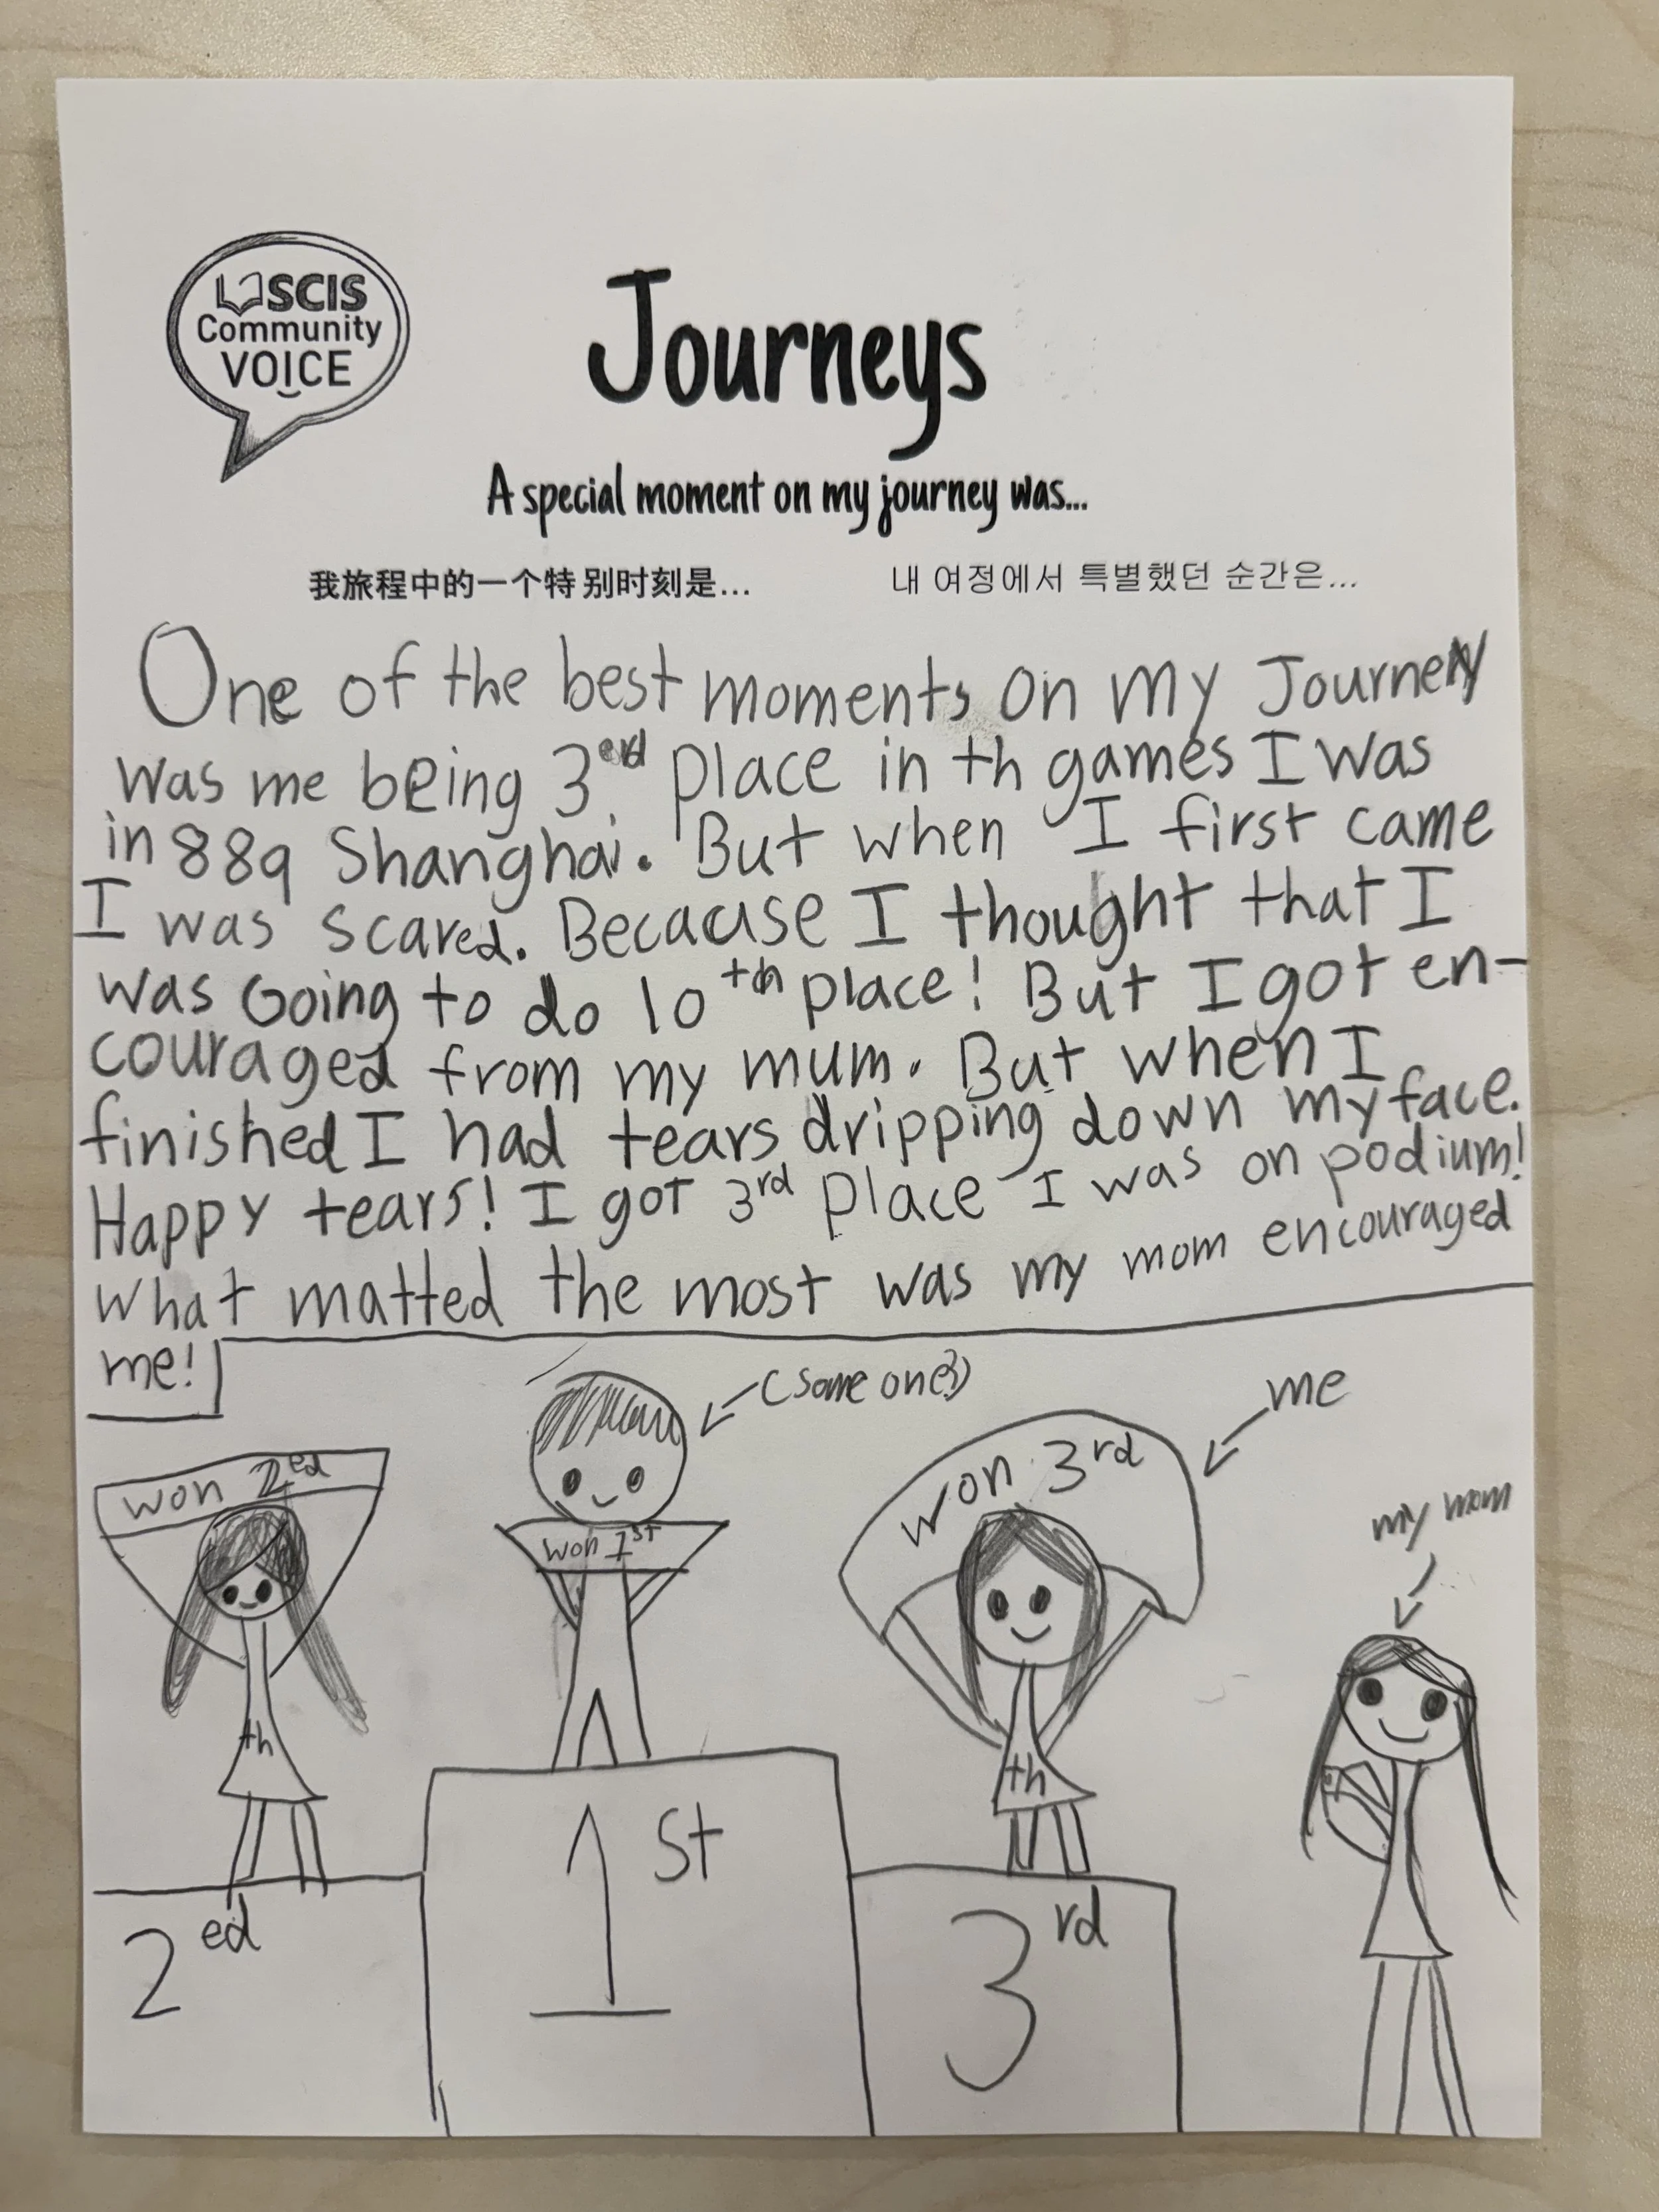 SCIS
Community
VOICE
Journeys
A special moment on my journey was...
我旅程中的一个特别时刻是...
내 여정에서 특별했던 순간은...
One of the best moments on my Journey
was me being 3erd place in th games I was
in 889 Shanghai. But when I first came
I was scared. Becacuse I thought that I
was Going to do 10th place! But I got en-
couraged from my mum. But when I
finished I had tears dripping down my face.
Happy tears! I got 3rd Place I was on podium!
What matted the most was my mom encouraged
me!
(some one?)
me
my mom
won 2ed
won 1st
won 3rd
th
th
2ed
1st
3rd